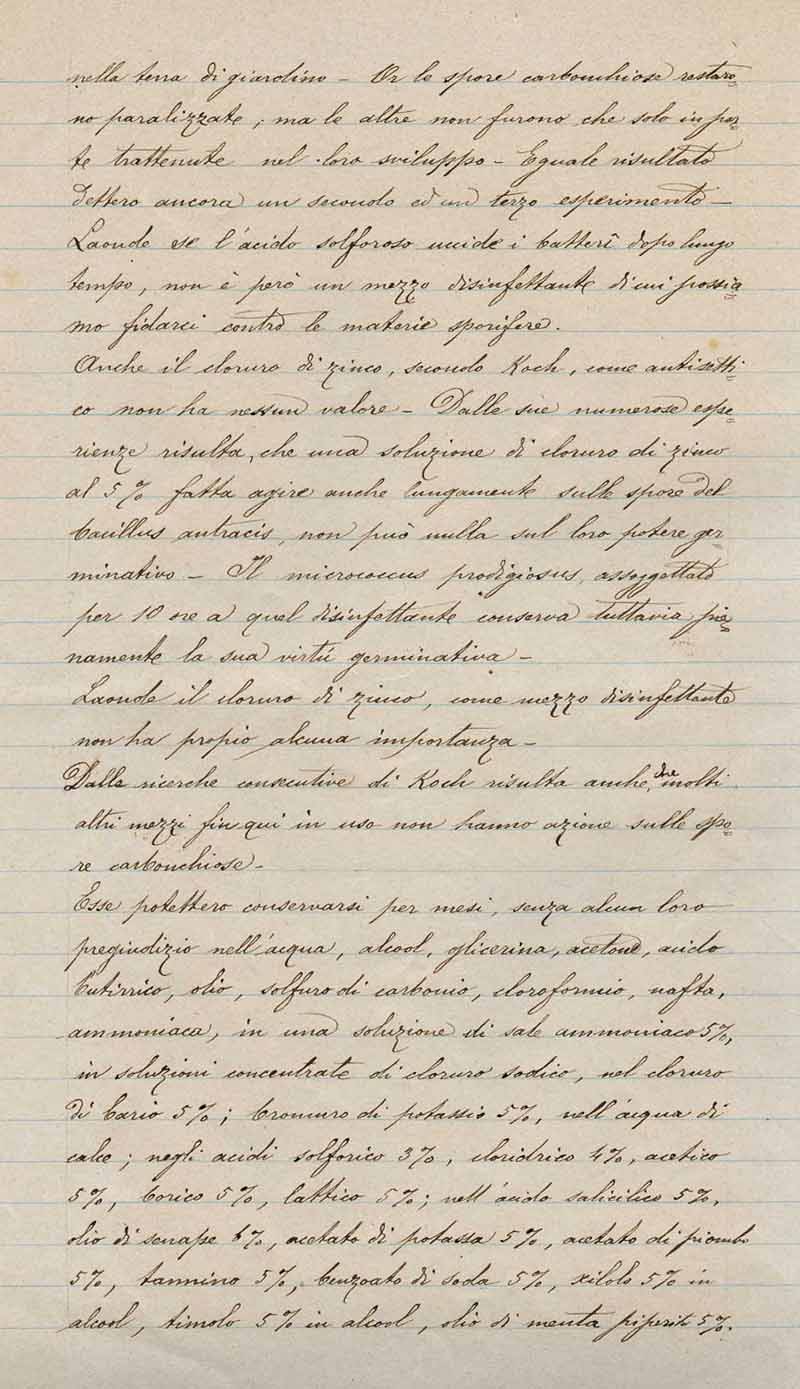 nella terra di giardino - Or le spore carbonchiose restaro=
no paralizzate, ma le altre non furono che solo in par=
te trattenute nel loro sviluppo - Eguale risultato
dettero ancora un secondo ed un terzo esperimento -
Laonde se l'acido solforoso uccide i batterî dopo lungo
tempo, non è però un mezzo disinfettante di cui possia=
mo fidarci contro le materie sporifere.
Anche il cloruro di zinco, secondo Koch, come antisetti=
co non ha nessun valore - Dalle sue numerose espe=
rienze risulta, che una soluzione di cloruro di zinco
al 5% fatta agire anche lungamente sulle spore del
bacillus antracis, non può nulla sul loro potere ger
minativo - Il micrococcus prodigiosus, assoggettato
per 10 ore a quel disinfettante conserva tuttavia pie=
namente la sua virtú germinativa -
Laonde il cloruro di zinco, come mezzo disinfettante
non ha propio alcuna importanza -
Dalle ricerche consecutive di Koch risulta anche, che molti
altri mezzi fin qui in uso non hanno azione sulle spo=
re carbonchiose -
Esse potettero conservarsi per mesi, senza alcun loro
pregiudizio nell'acqua, alcool, glicerina, acetone, acido
butirrico, olio, solfuro di carbonio, cloroformio, nafta,
ammoniaca, in una soluzione di sale ammoniaco 5%,
in soluzioni concentrate di cloruro sodico, nel cloruro
di bario 5%; bromuro di potassio 5%, nell'acqua di
calce; negli acidi solforico 3%, cloridrico 4%, acetico
5%, borico 5%, lattico 5%; nell'acido salicilico 5%,
olio di senape 6%, acetato di potassa 5%, acetato di piombo
5%, tannino 5%, benzoato di soda 5%, xilolo 5% in
alcool, timolo 5% in alcool, olio di menta piperiti 5%.